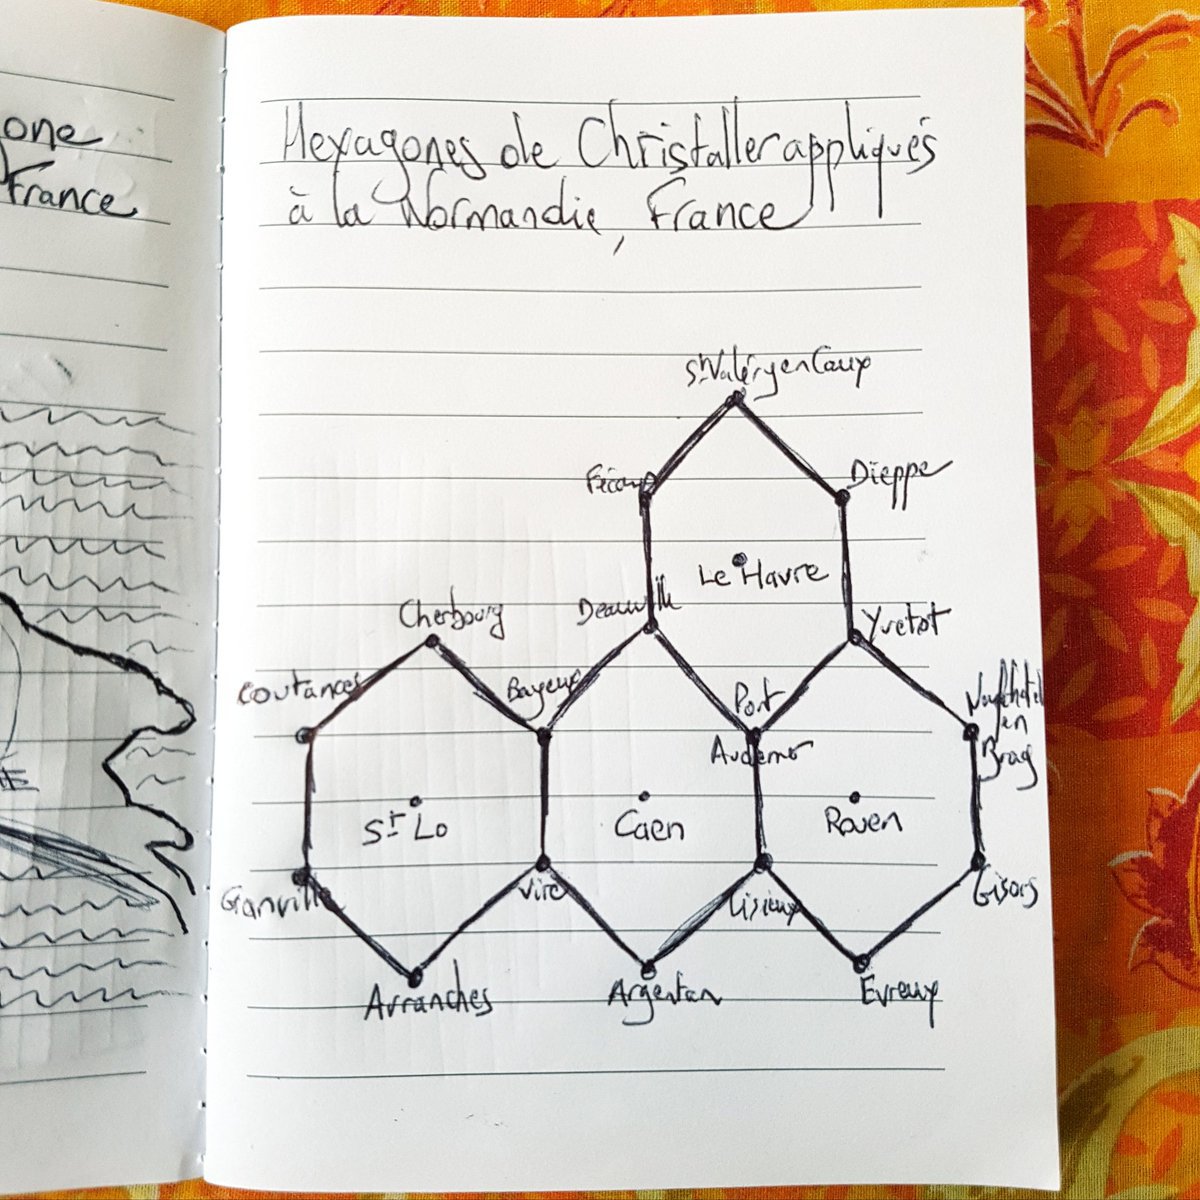 one
France
Hexagones de Christaller appliqués
à la Normandie, France
St Valéry en Caux
Fécamp
Dieppe
Le Havre
Deauville
Cherbourg
Yvetot
Coutances
Bayeux
Port
Audemer
Neufchatel
en
Bray
St Lo
Caen
Rouen
Granville
Vire
Lisieux
Gisors
Avranches
Argentan
Evreux